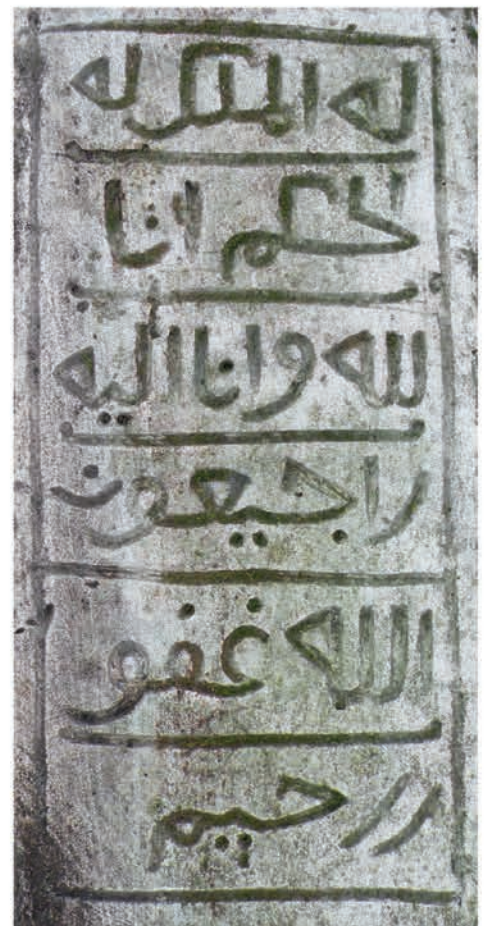 له الملك وله
الحكم انا
لله وانا اليه
راجيعون
الله غفو
ر رحيم